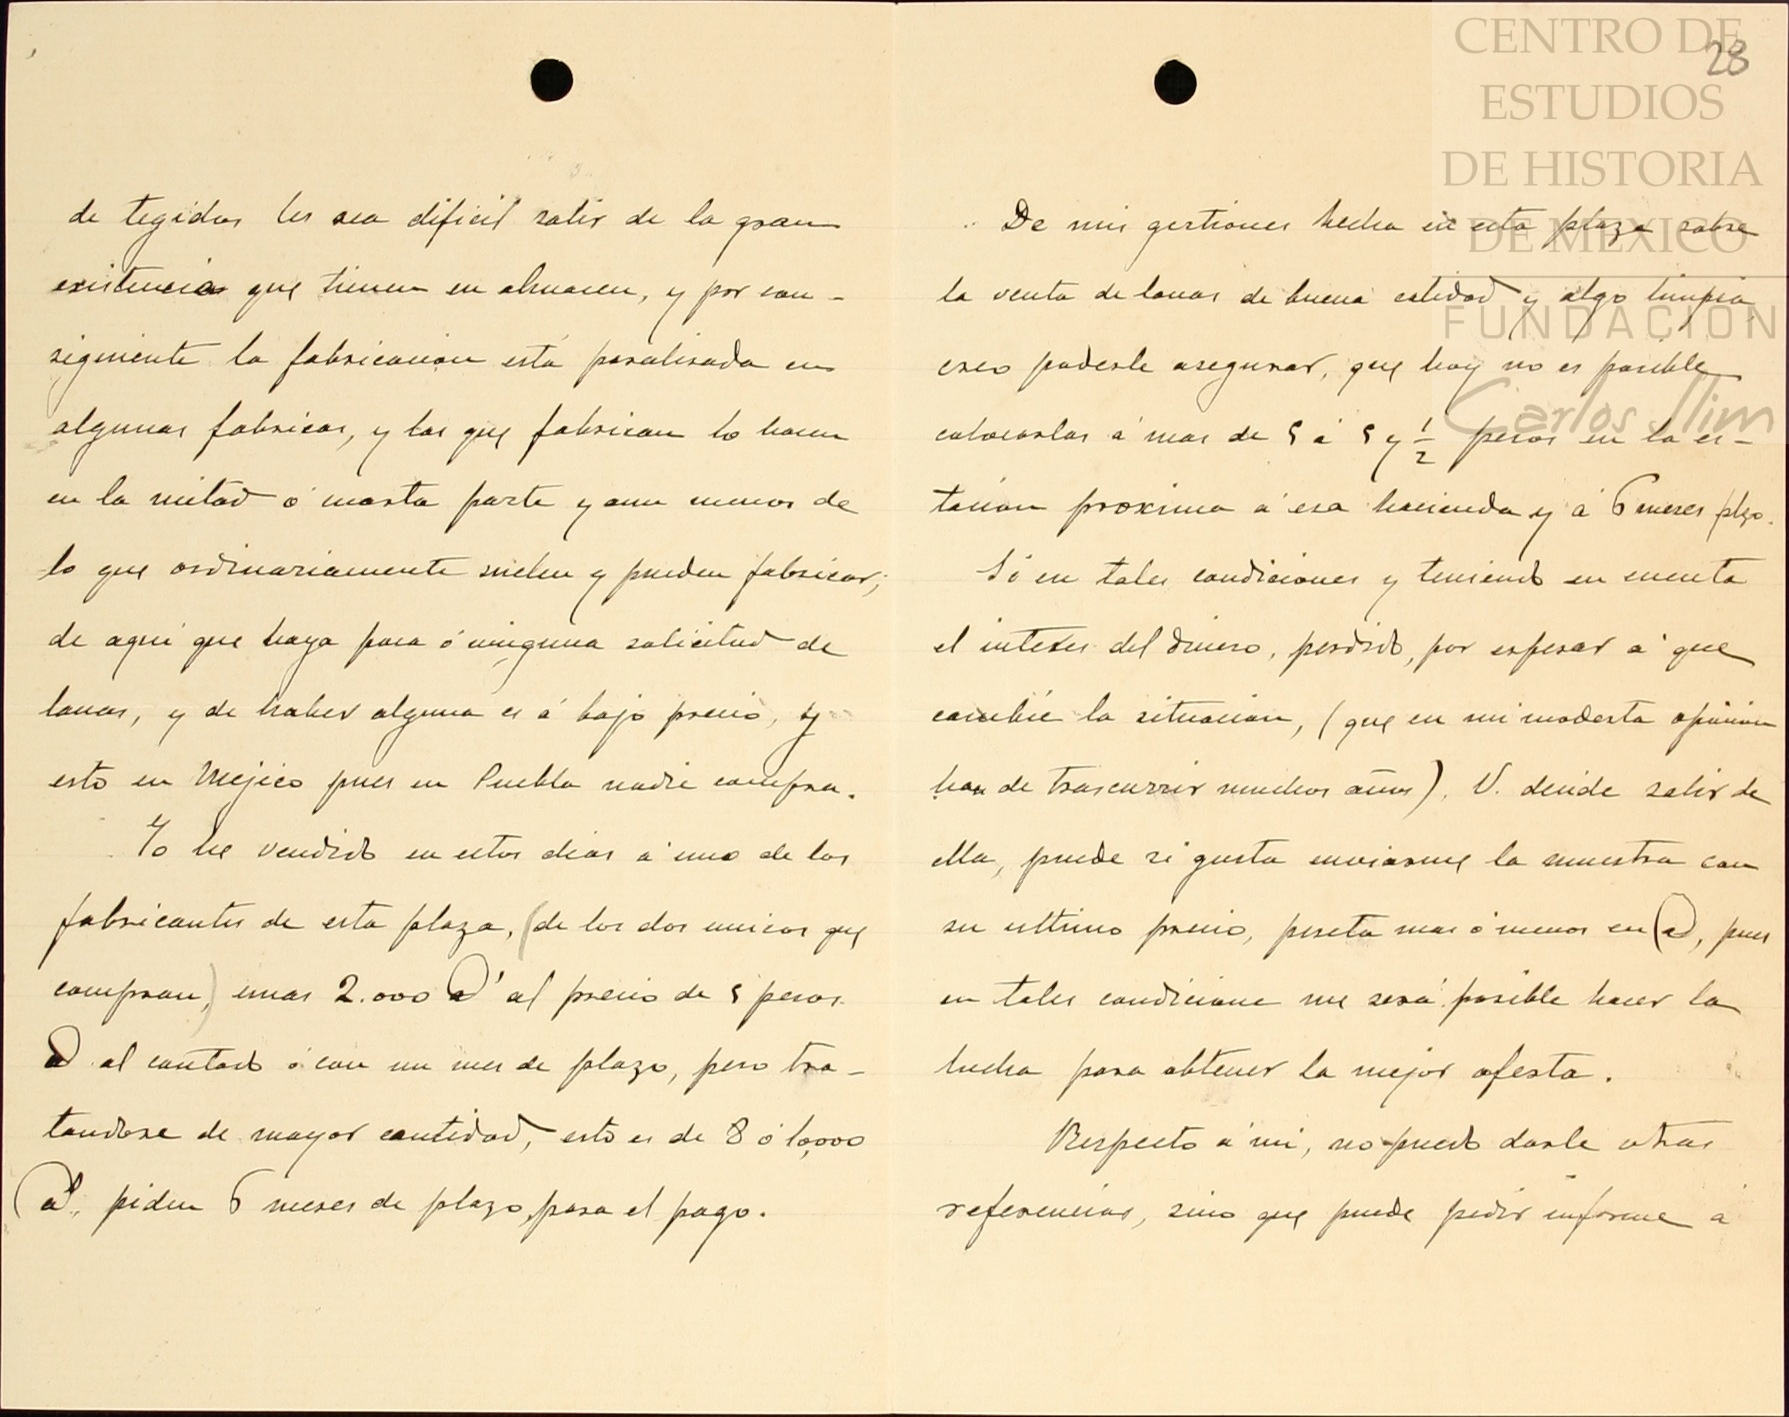 de tegidos les sea dificil salir de la gran
existencia que tienen en almacen, y por con-
siguiente la fabricacion está paralisada en
algunas fabricas, y las que fabrican lo hacen
en la mitad ó cuarta parte y aun menos de
lo que ordinariamente suelen y pueden fabricar;
de aqui que haya poca ó ninguna solicitud de
lanas, y de haber alguna es á bajo precio, y
esto en Mejico pues en Puebla nadie compra.
Yo he vendido en estos dias á uno de los
fabricantes de esta plaza, (de los dos unicos que
compran,) unas 2.000 @ al precio de 5 pesos
@ al contado ó con un mes de plazo, pero tra-
tandose de mayor cantidad, esto es de 8 ó 10,000
@, piden 6 meses de plazo, para el pago.
28
De mis gestiones hecha en esta plaza sobre
la venta de lanas de buena calidad y algo limpia
creo poderle asegurar, que hoy no es posible
colocarlas á mas de 5 á 5 y 1/2 pesos en la es-
tacion proxima á esa hacienda y á 6 meses plzo.
Si en tales condiciones y teniendo en cuenta
el interes del dinero, perdido, por esperar á que
cambie la situacion, (que en mi modesta opinion
han de trascurrir muchos años), V. decide salir de
ella, puede si gusta enviarme la muestra con
su ultimo precio, peseta mas ó menos en @, pues
en tales condicione me será posible hacer la
lucha para obtener la mejor oferta.
Respecto á mi, no puedo darle otras
referencias, sino que puede pedir informe á
CENTRO DE
ESTUDIOS
DE HISTORIA
DE MÉXICO
FUNDACIÓN
Carlos Slim